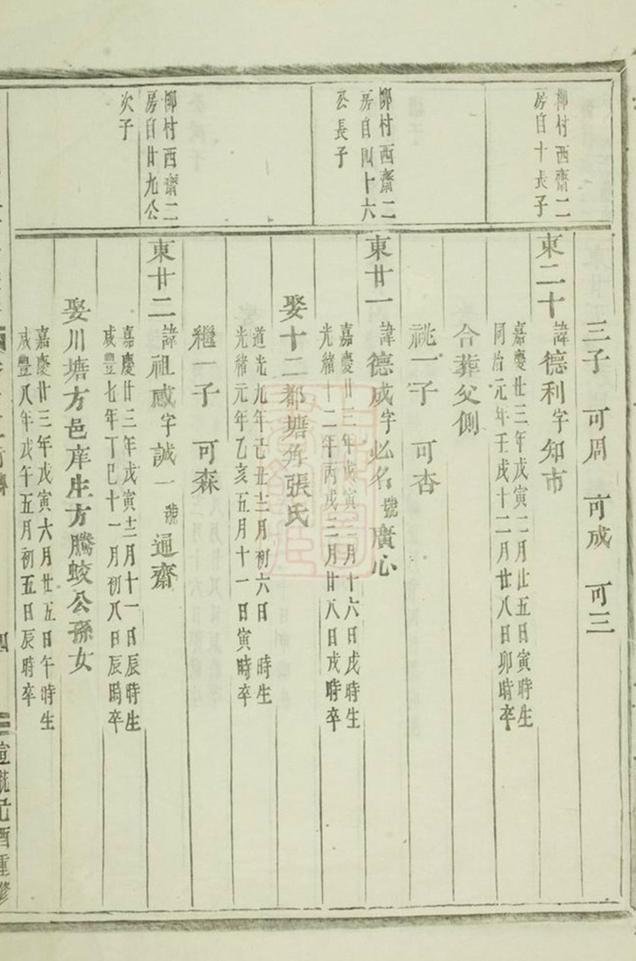 三子 可周 可成 可三
柳村西齋二
房自十長子
東二十 諱德利字知市
嘉慶廿三年戊寅二月廿五日寅時生
同治元年壬戌十二月廿八日卯時卒
合葬父側
祧一子 可杏
柳村西齋二
房自四十六
公長子
東廿一 諱德成字必名號廣心
嘉慶廿三年戊寅 月十六日戌時生
光緒十二年丙戌三月廿八日戌時卒
娶十二都塘角張氏
道光九年己丑十二月初六日 時生
光緒元年乙亥五月十一日寅時卒
繼一子 可森
柳村西齋二
房自廿九公
次子
東廿二 諱祖感字誠一號通齋
嘉慶廿三年戊寅十二月十一日辰時生
咸豐七年丁巳十一月初八日辰時卒
娶川塘方邑庠生方騰蛟公孫女
嘉慶廿三年戊寅六月廿五日午時生
咸豐八年戊午五月初五日辰時卒
四
宣統己酉重修